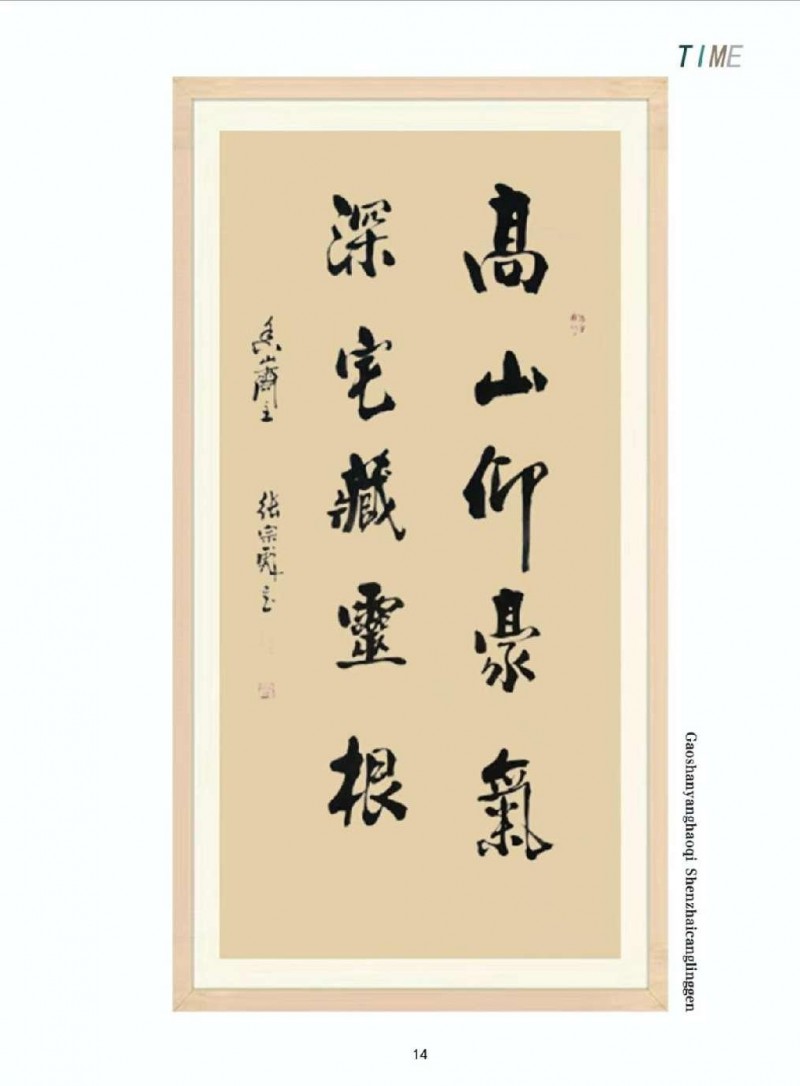 TIME
高山仰豪氣
深宅藏靈根
齋主 张宗彪书
Gaoshanyanghaoqi Shenzhaicanglinggen
14